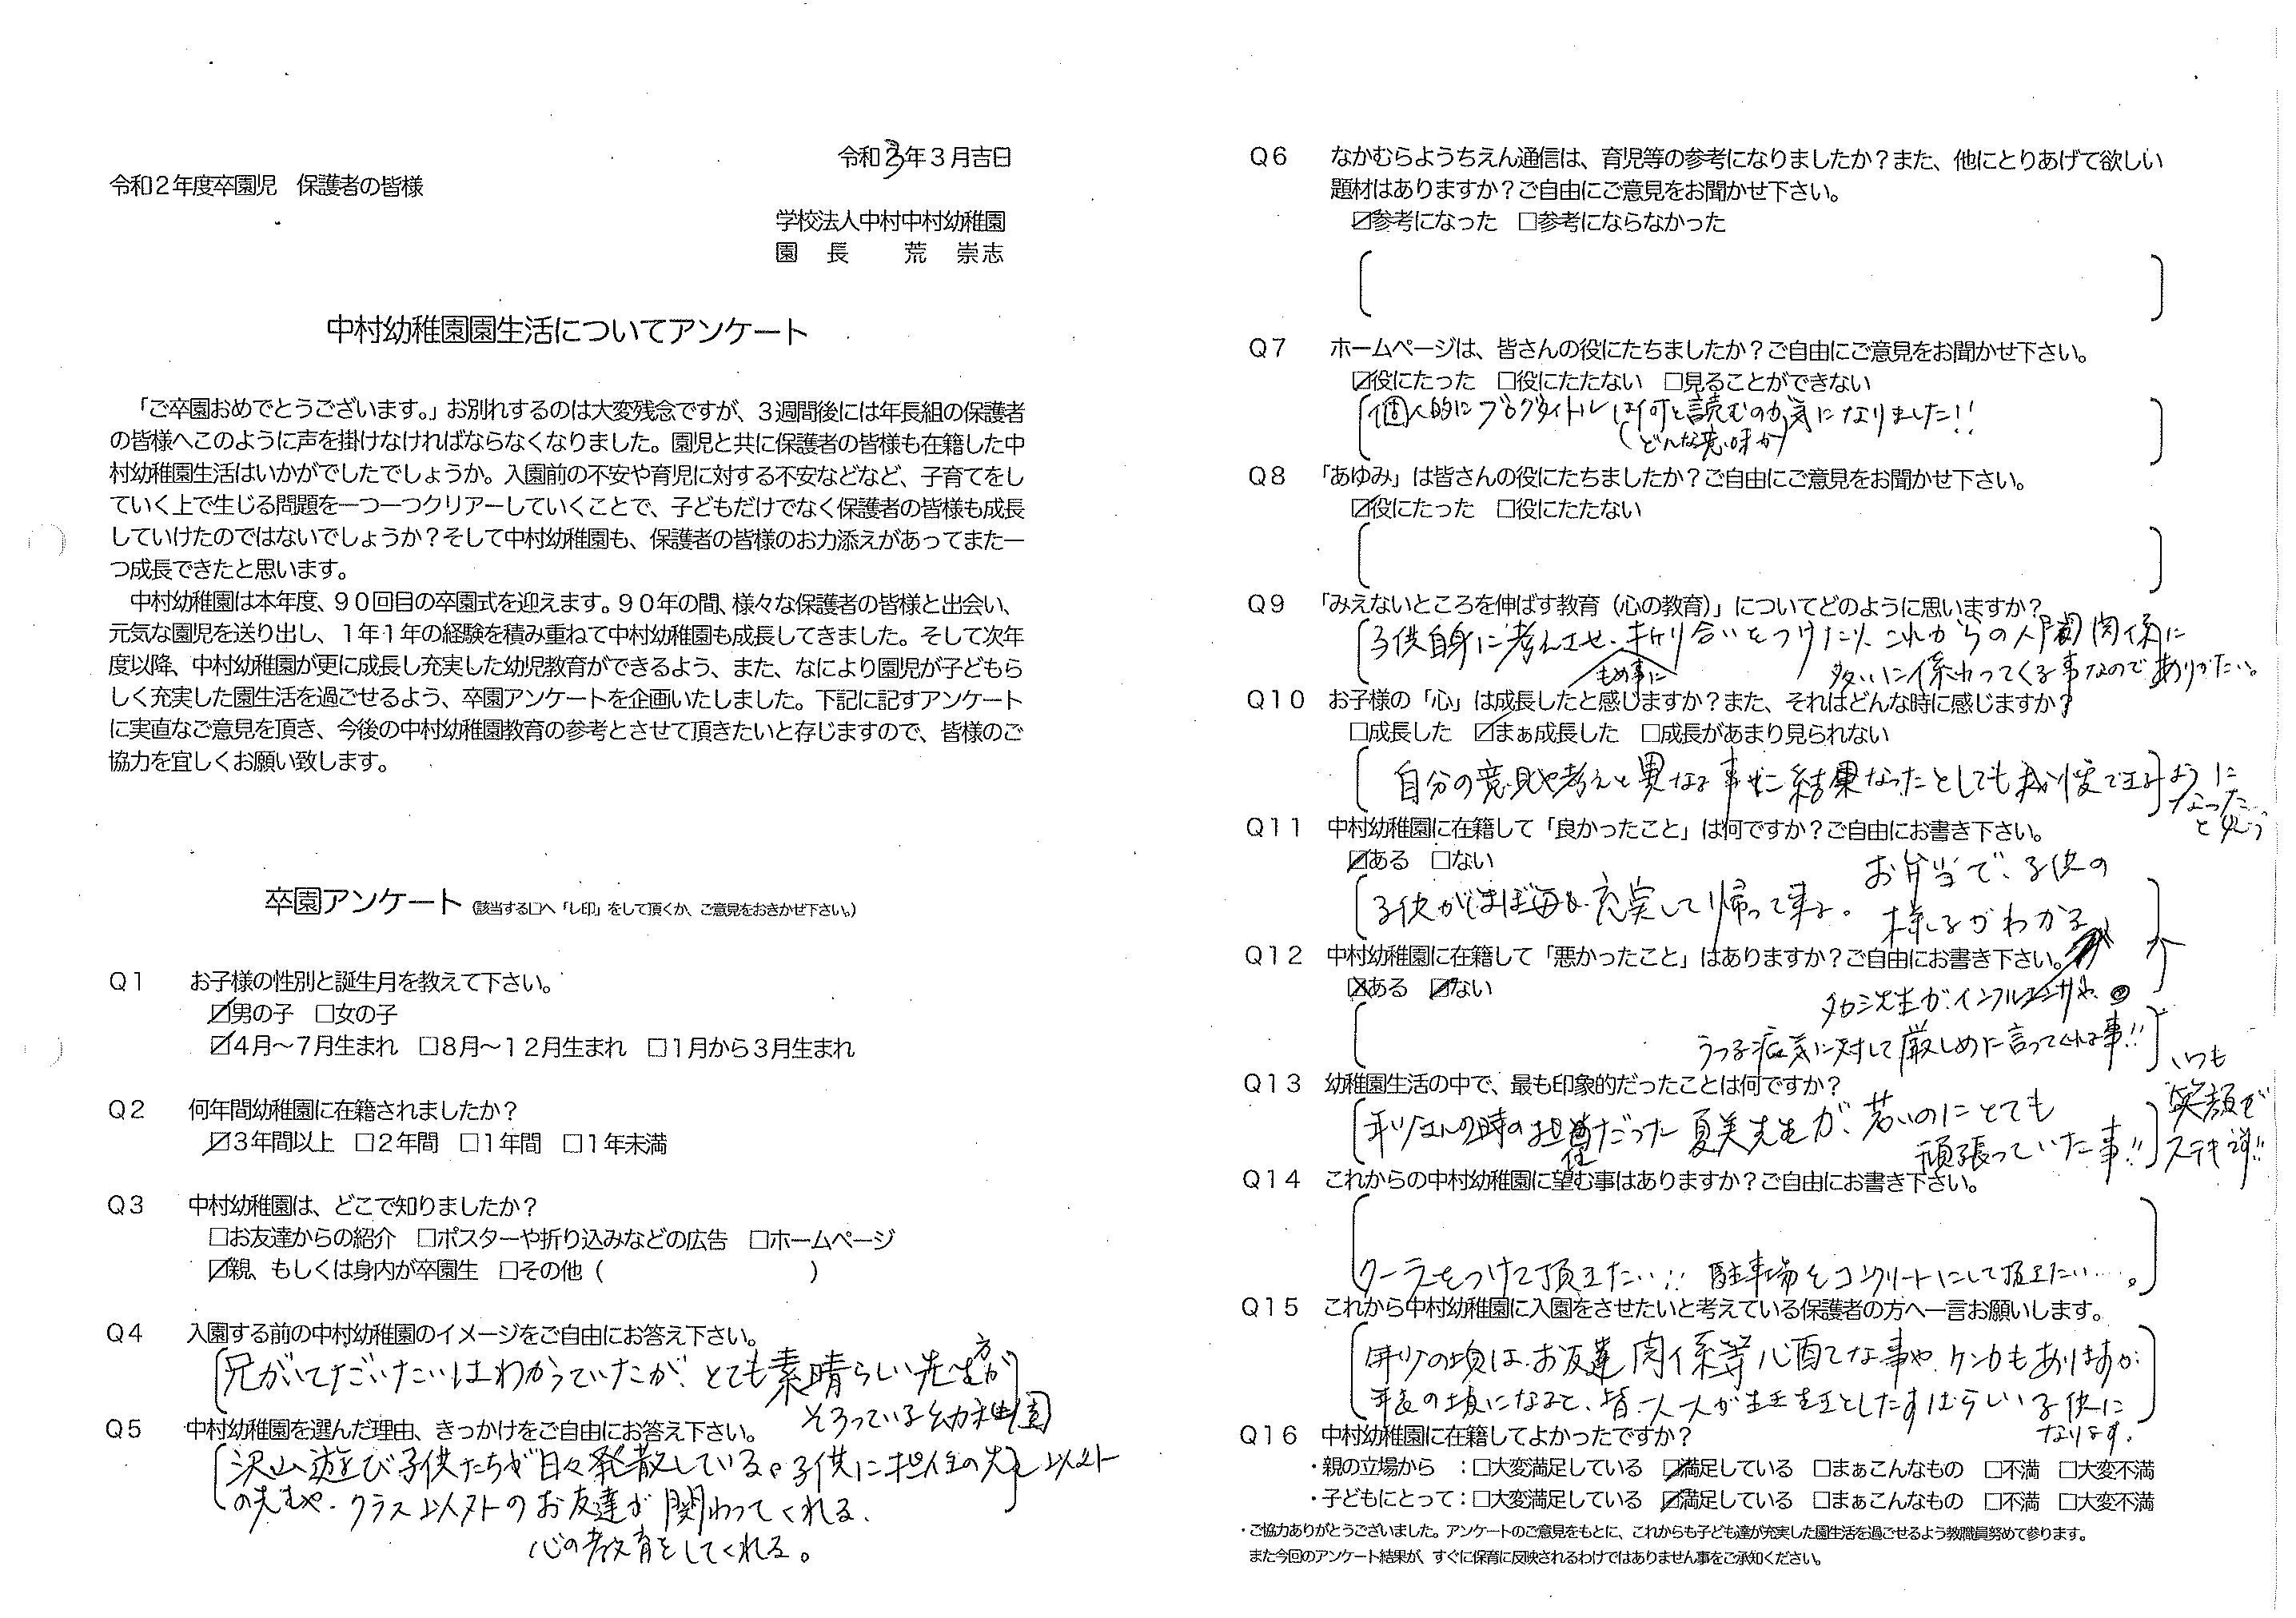 令和3年3月吉日
令和2年度卒園児　保護者の皆様
学校法人中村中村幼稚園
園　長　　荒　崇志
中村幼稚園園生活についてアンケート
「ご卒園おめでとうございます。」お別れするのは大変残念ですが、3週間後には年長組の保護者
の皆様へこのように声を掛けなければならなくなりました。園児と共に保護者の皆様も在籍した中
村幼稚園生活はいかがでしたでしょうか。入園前の不安や育児に対する不安などなど、子育てをし
ていく上で生じる問題を一つ一つクリアーしていくことで、子どもだけでなく保護者の皆様も成長
していけたのではないでしょうか？そして中村幼稚園も、保護者の皆様のお力添えがあってまた一
つ成長できたと思います。
中村幼稚園は本年度、90回目の卒園式を迎えます。90年の間、様々な保護者の皆様と出会い、
元気な園児を送り出し、1年1年の経験を積み重ねて中村幼稚園も成長してきました。そして次年
度以降、中村幼稚園が更に成長し充実した幼児教育ができるよう、また、なにより園児が子どもら
しく充実した園生活を過ごせるよう、卒園アンケートを企画いたしました。下記に記すアンケート
に実直なご意見を頂き、今後の中村幼稚園教育の参考とさせて頂きたいと存じますので、皆様のご
協力を宜しくお願い致します。
卒園アンケート（該当する□へ「レ印」をして頂くか、ご意見をおきかせ下さい。）
Q1　お子様の性別と誕生月を教えて下さい。
☑男の子　□女の子
☑4月～7月生まれ　□8月～12月生まれ　□1月から3月生まれ
Q2　何年間幼稚園に在籍されましたか？
☑3年間以上　□2年間　□1年間　□1年未満
Q3　中村幼稚園は、どこで知りましたか？
□お友達からの紹介　□ポスターや折り込みなどの広告　□ホームページ
☑親、もしくは身内が卒園生　□その他（　　　　　）
Q4　入園する前の中村幼稚園のイメージをご自由にお答え下さい。
兄がいてだいたいはわかっていたが、とても素晴らしい先生方が
そろっている幼稚園
Q5　中村幼稚園を選んだ理由、きっかけをご自由にお答え下さい。
沢山遊び子供たちが日々発散している。子供に担任の先生以外
の先生や、クラス以外のお友達が関わってくれる、
心の教育をしてくれる。
Q6　なかむらようちえん通信は、育児等の参考になりましたか？また、他にとりあげて欲しい
題材はありますか？ご自由にご意見をお聞かせ下さい。
☑参考になった　□参考にならなかった
Q7　ホームページは、皆さんの役にたちましたか？ご自由にご意見をお聞かせ下さい。
☑役にたった　□役にたたない　□見ることができない
個人的にブログタイトルは何と読むのか気になりました!!
（どんな意味か）
Q8　「あゆみ」は皆さんの役にたちましたか？ご自由にご意見をお聞かせ下さい。
☑役にたった　□役にたたない
Q9　「みえないところを伸ばす教育（心の教育）」についてどのように思いますか？
子供自身に考えさせ、折り合いをつけたり、これからの人間関係に
もめ事に
多いに係わってくる事なのでありがたい。
Q10　お子様の「心」は成長したと感じますか？また、それはどんな時に感じますか？
□成長した　☑まぁ成長した　□成長があまり見られない
自分の意見や考えと異なる事に結果なったとしても我慢できるように
なった
と思う
Q11　中村幼稚園に在籍して「良かったこと」は何ですか？ご自由にお書き下さい。
☑ある　□ない
お弁当で、子供の
子供がほぼ毎日充実して帰って来る。
様子がわかる
Q12　中村幼稚園に在籍して「悪かったこと」はありますか？ご自由にお書き下さい。
☒ある　☑ない
タカシ先生が、インフルエンザや、
うつる病気に対して厳しめに言ってくれる事!!
Q13　幼稚園生活の中で、最も印象的だったことは何ですか？
年少さんの時の担任だった夏美先生が、若いのにとても
頑張っていた事!!
いつも
笑顔で
ステキです!!
Q14　これからの中村幼稚園に望む事はありますか？ご自由にお書き下さい。
クーラーをつけて頂きたい…!!　駐車場をコンクリートにして頂きたい…。
Q15　これから中村幼稚園に入園をさせたいと考えている保護者の方へ一言お願いします。
年少の頃は、お友達関係等心配な事や、ケンカもありますが、
年長の頃になると、皆一人一人が生き生きとしたすばらしい子供に
なります。
Q16　中村幼稚園に在籍してよかったですか？
・親の立場から　：□大変満足している　☑満足している　□まぁこんなもの　□不満　□大変不満
・子どもにとって：□大変満足している　☑満足している　□まぁこんなもの　□不満　□大変不満
・ご協力ありがとうございました。アンケートのご意見をもとに、これからも子ども達が充実した園生活を過ごせるよう教職員努めて参ります。
また今回のアンケート結果が、すぐに保育に反映されるわけではありません事をご承知ください。